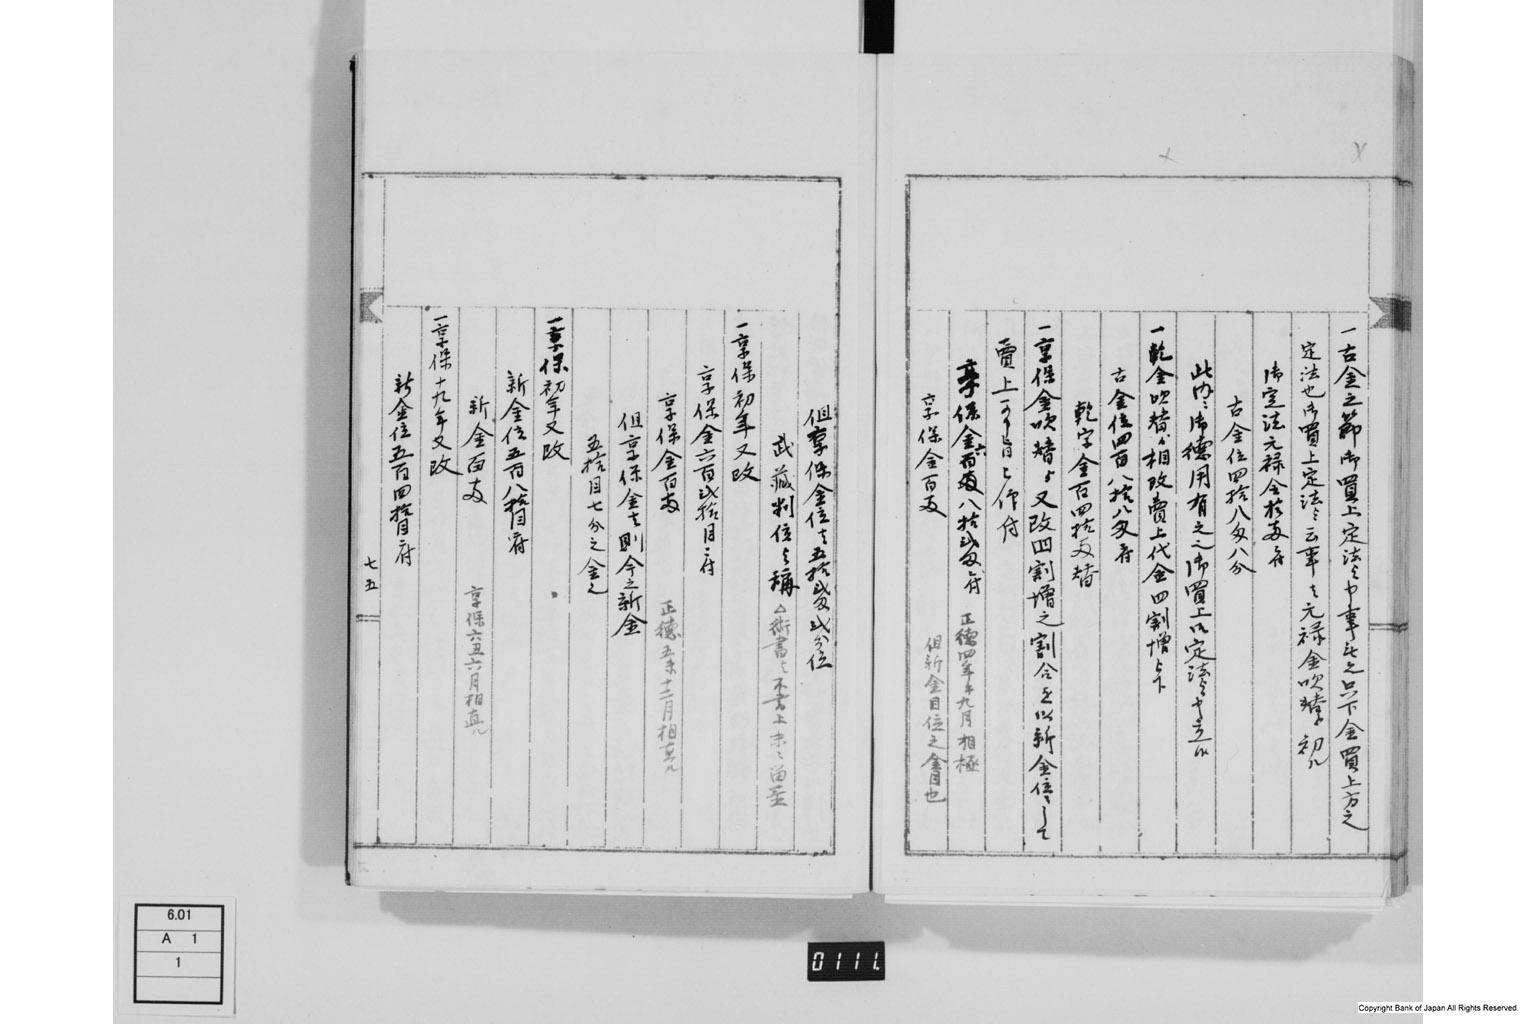 一古金之節御買上定法と申事無之只下金買上方之
定法也御買上定法と云事ハ元禄金吹替初ル
御定法元禄金拾両ニ付
古金位四拾八匁八分
此内ニ御徳用有之之御買上御定法と申立候
一乾金吹替ゟ相改賣上代金四割増被下
古金位四百八拾八匁ニ付
乾字金百四拾両替
一享保金吹替ゟ又改四割増之割合を以新金位ニして
賣上可申旨被仰付
享保金六百八拾弐匁ニ付 正徳四年午九月相極
享保金百両 但新金目位之金目也
但享保金位ハ五拾弐匁弐分位
武蔵判位と稱 △術書ニハ不書上末ニ留置
一享保初年又改
享保金六百弐拾目ニ付
享保金百両 正徳五未十二月相直ル
但享保金ハ則今之新金
五拾目七分之金也
一享保初年又改
新金位五百八拾目ニ付
新金百両 享保六丑六月相直ル
一享保十九年又改
新金位五百四拾目ニ付
七五
6.01
A 1
1
0111
Copyright Bank of Japan All Rights Reserved.